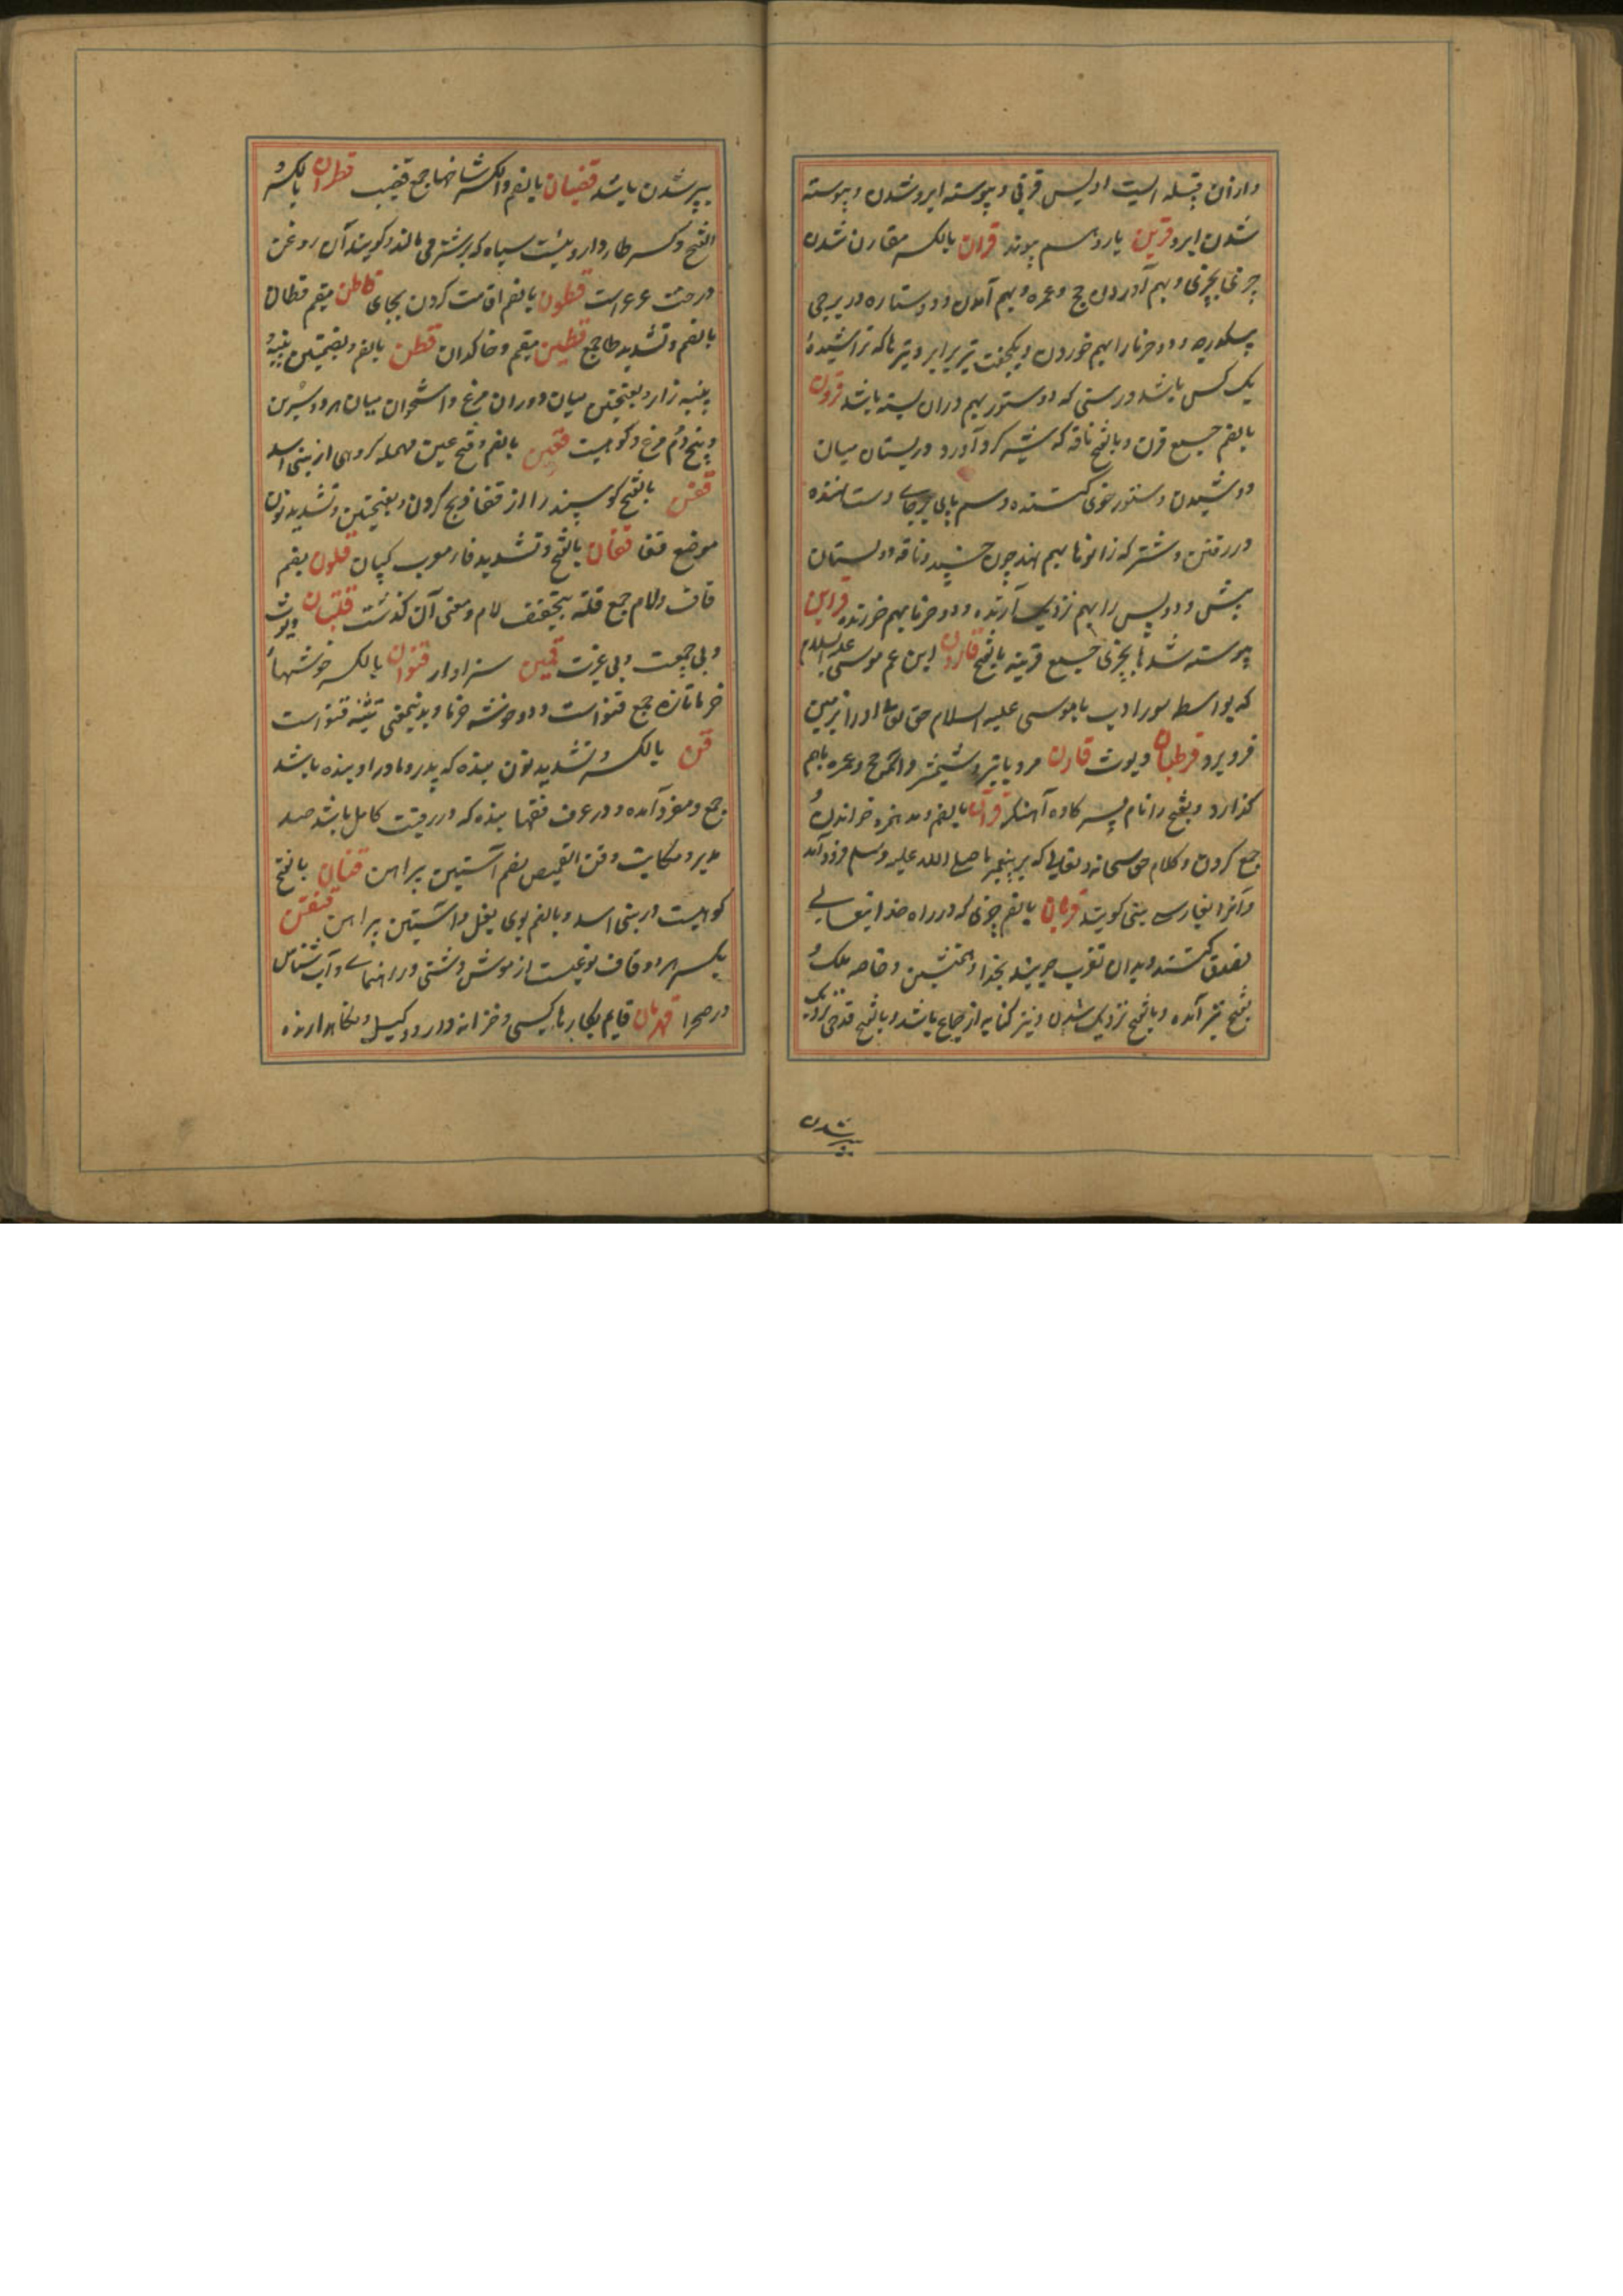 و ازان قبیله است اویس قرنی و پیوسته ابرو شدن و پیوسته
شدن ابرو قرین یار و هم پیوند قران بالکسر مقارن شدن
چیزی بچیزی و بهم آوردن حج و عمره و بهم آمدن دو ستاره در برجی
و دو خرما را بهم خوردن و یکجفت تیر برابر و تیرها که تراشیدهٔ
یک کس باشد و رسنی که دو ستور بهم دران بسته باشد قرون
بالضم جمع قرن و بالفتح ناقه که گرد آورد در پستان میان
دوشیدن و ستور خوی کننده و سم پای بر جای دست نهنده
در رفتن و شتر که زانوها بهم نهد چون خسپد و ناقه دو پستان
پیش و دو پس را بهم نزدیک آرنده و دو خرما بهم خورنده قراین
پیوسته شدها بچیزی جمع قرینه بالفتح قارون ابن عم موسی علیه السلام
که بواسطه سوء ادب با موسی علیه السلام حق تعالی او را بزمین
فرو برد قرطبان دیوث قارن مرد با تیر و شمشیر و آنکه حج و عمره باهم
گذارد و بفتح را نام پسر کاوه آهنگر قرآن بالضم و مد همزه خواندن و
جمع کردن و کلام حق سبحانه و تعالی که بر پیغمبر ما صلی الله علیه وسلم فرود آمد
و آنرا بفارسی نبی گویند قربان بالضم چیزی که در راه خدایتعالی
تصدق کنند و بدان تقرب جویند بخدا و همنشین و خاصه ملک و
بفتح نیز آمده و بالکسر نزدیک شدن و نیز کنایه از جماع باشد و بالفتح قدحی که نزدیک
بپر شدن
بپر شدن باشد قضبان بالضم والکسر شاخها جمع قضیب قطران بالکسر و
الفتح و کسر طا داروئیست سیاه که بر شتر می مالند و گویند آن روغن
درخت عرعر است قطون بالضم اقامت کردن بجای قاطن مقیم قطان
بالضم و تشدید طا جمع قطین مقیم و خاکدان قطن بالضم و بضمتین پنبه و
پنبه زار و بفتحتین میان دو ران مرغ و استخوان میان هر دو سرین
و بیخ دم مرغ و کوهیست قعین بالضم و فتح عین مهمله گروهی از بنی اسد
قفن بالفتح گوسپند را از قفا ذبح کردن و بفتحتین و تشدید نون
موضع قفا قفان بالفتح و تشدید فا معرب کپان قلون بضم
قاف و لام جمع قله بتخفیف لام و معنی آن گذشت قلتبان دیوث
و بی حمیت و بی عزت قمین سزاوار قنوان بالکسر خوشهای
خرما تازه جمع قنو است و دو خوشه خرما و بدینمعنی تثنیه قنو است
قن بالکسر و تشدید نون بنده که پدر و مادر او بنده باشد
جمع و مفرد آمده و در عرف فقها بنده که در رقیت کامل باشد ضد
مدبر و مکاتب و قن القمیص بضم آستین پیراهن قنان بالفتح
کوهیست در بنی اسد و بالضم بوی بغل و آستین پیراهن قنقن
بکسر هر دو قاف نوعیست از موش دشتی و راهنمای و آب شناس
در صحرا قهرمان قایم بکارهای کسی و خزانه دار و وکیل و نگاهدارنده